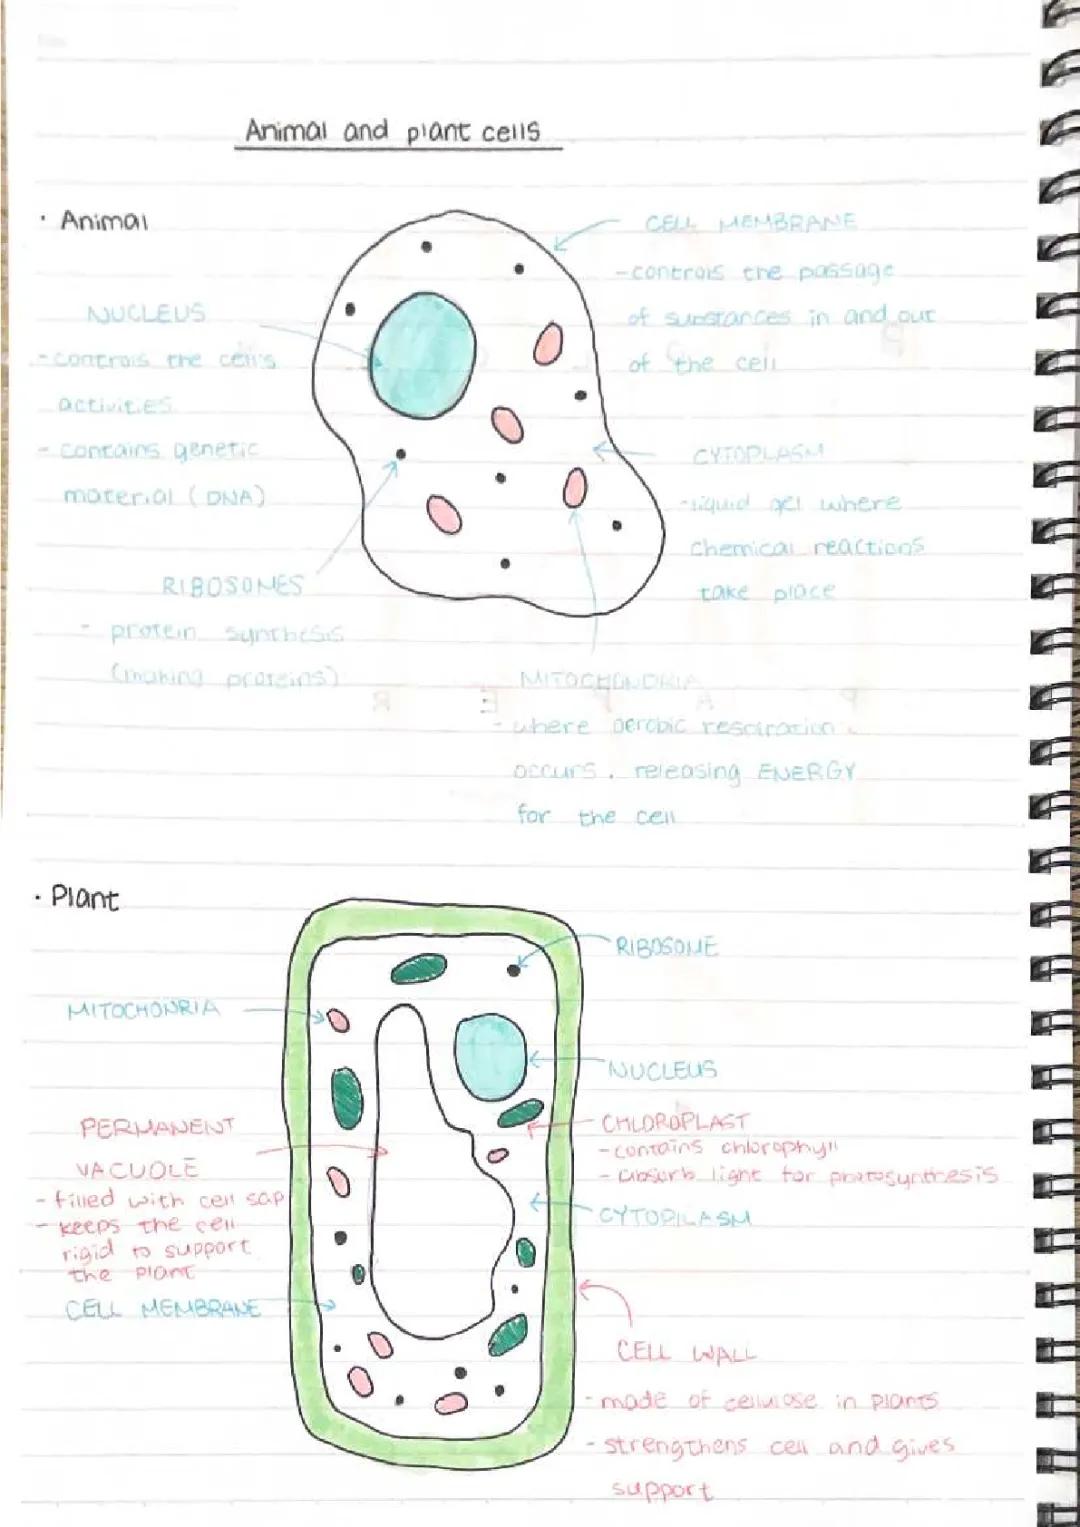 Animal and plant cells
· Animal
CELL MEMBRANE
-controls the passage
of substances in and out
of the cell
NUCLEUS
- controls the cell's
activities
- contains genetic
material (DNA)
CYTOPLASM
-liquid gel where
chemical reactions
take place
RIBOSOMES
- protein synthesis
(making proteins)
MITOCHONDRIA
- where aerobic respiration
occurs, releasing ENERGY
for the cell
· Plant
RIBOSOME
MITOCHONRIA
NUCLEUS
PERMANENT
VACUOLE
- filled with cell sap
- keeps the cell
rigid to support
the plant
CHLOROPLAST
- contains chlorophyll
- absorb light for photosynthesis
CYTOPLASM
CELL MEMBRANE
CELL WALL
- made of cellulose in plants
- strengthens cell and gives
support